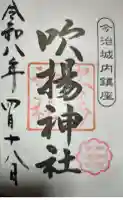 今治城内鎮座
吹揚神社
令和八年四月十八日